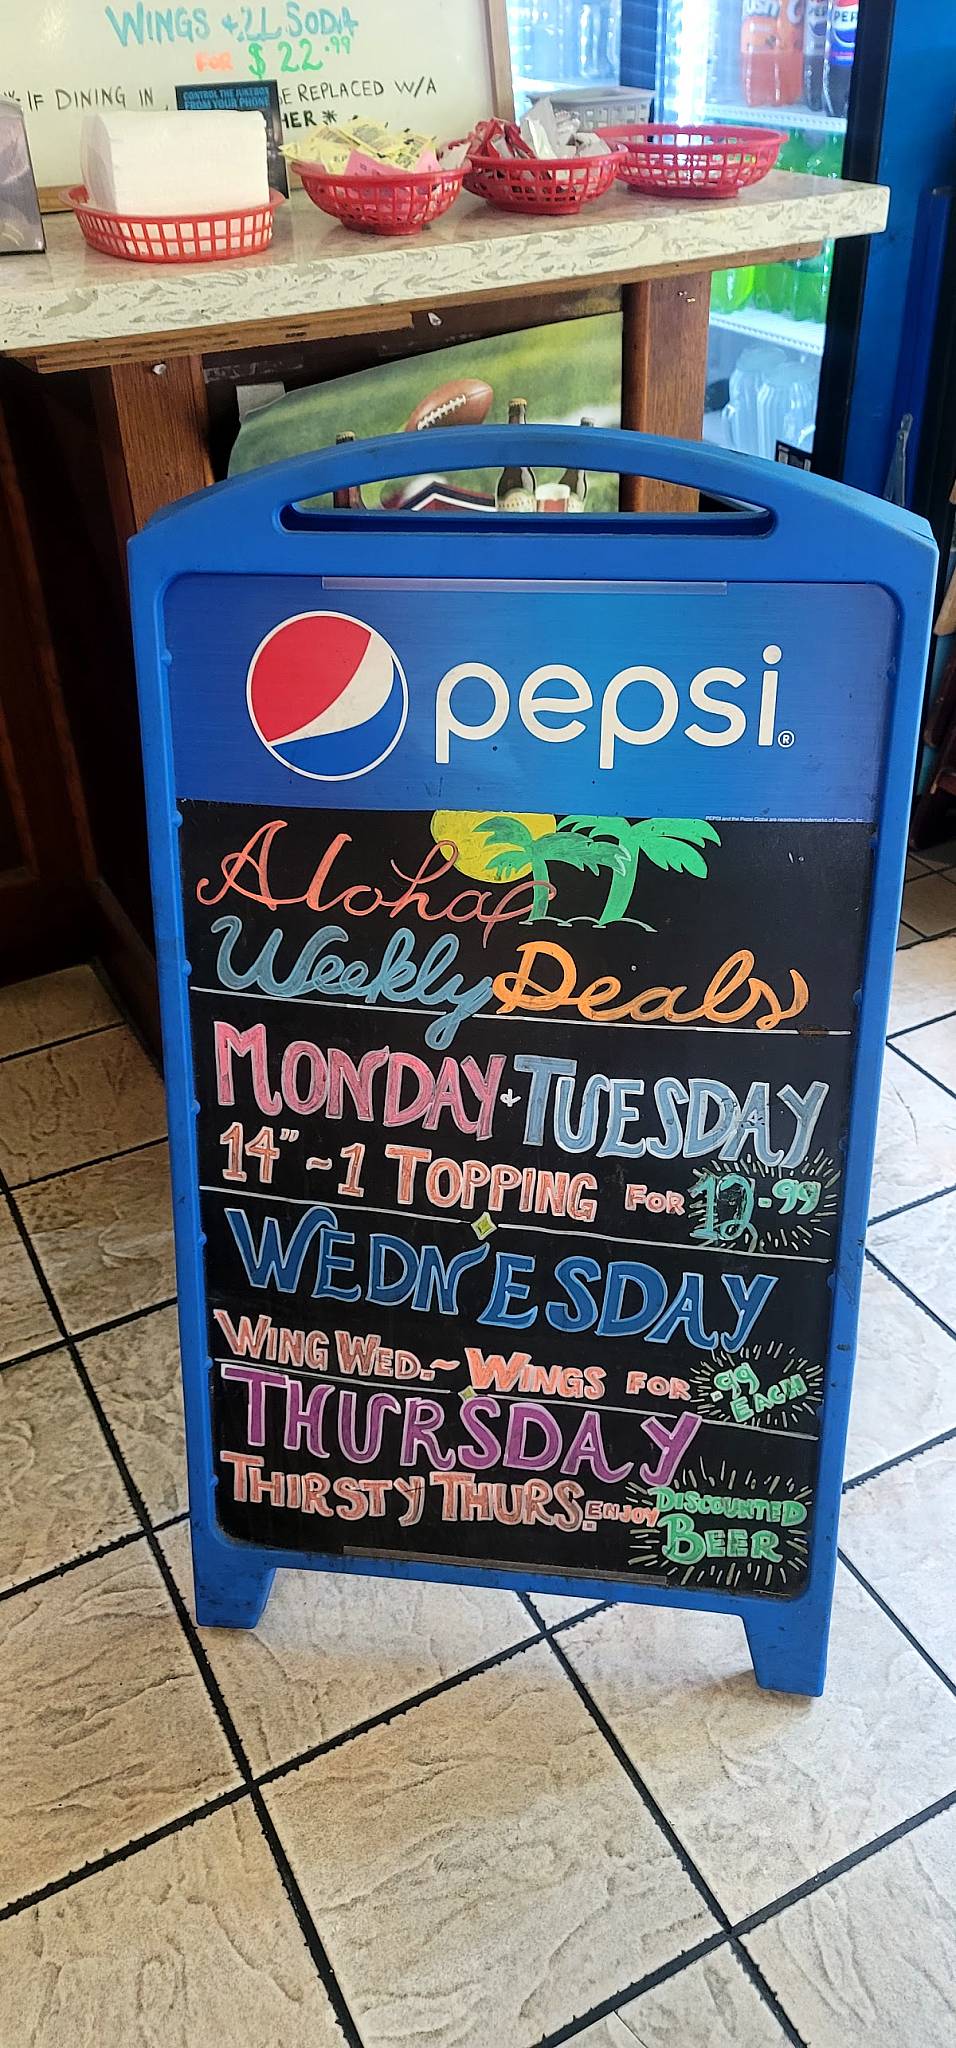 WINGS + 2L SODA
FOR $22.99
* IF DINING IN, BE REPLACED W/A
CONTROL THE JUKEBOX
FROM YOUR PHONE
HER *
PEPSI
pepsi®
PEPSI and the Pepsi Globe are registered trademarks of PepsiCo, Inc.
Aloha
Weekly Deals
MONDAY + TUESDAY
14" ~ 1 TOPPING FOR 12.99
WEDNESDAY
WING WED. ~ WINGS FOR .99 EACH
THURSDAY
THIRSTY THURS. ENJOY DISCOUNTED BEER